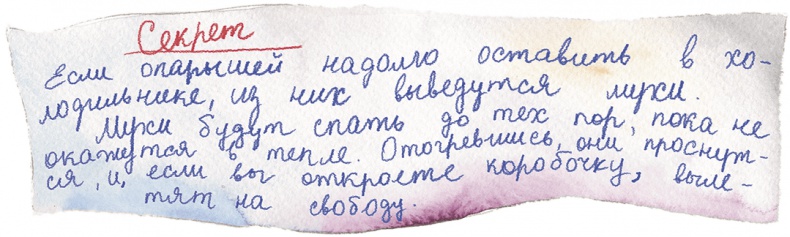 Секрет
Если опарышей надолго оставить в хо-
лодильнике, из них выведутся мухи.
Мухи будут спать до тех пор, пока не
окажутся в тепле. Отогревшись, они проснут-
ся, и, если вы откроете коробочку, выле-
тят на свободу.